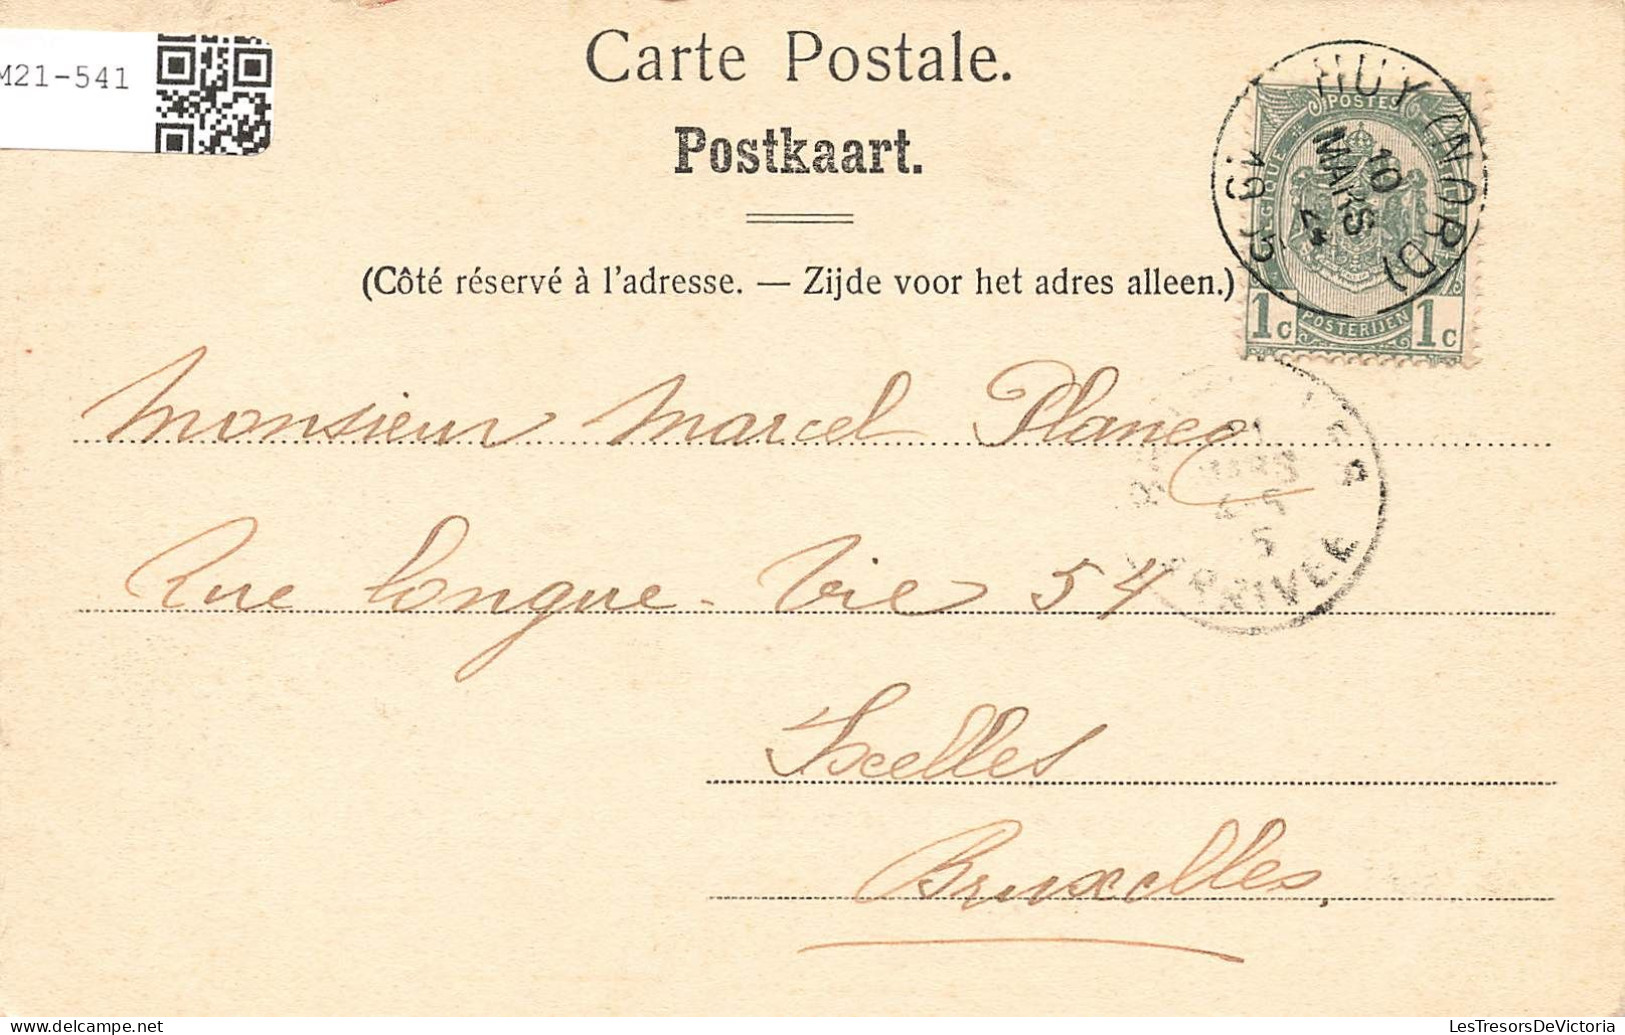 M21-541
Carte Postale.
Postkaart.
(Côté réservé à l'adresse. — Zijde voor het adres alleen.)
HUY (NORD)
10
MARS
1905
POSTES
BELGIQUE
1c POSTERIJEN 1c
Monsieur Marcel
Rue Longue-Vie 54
ARRIVEE
Ixelles
Bruxelles.
delcampe.net
LesTresorsDeVictoria